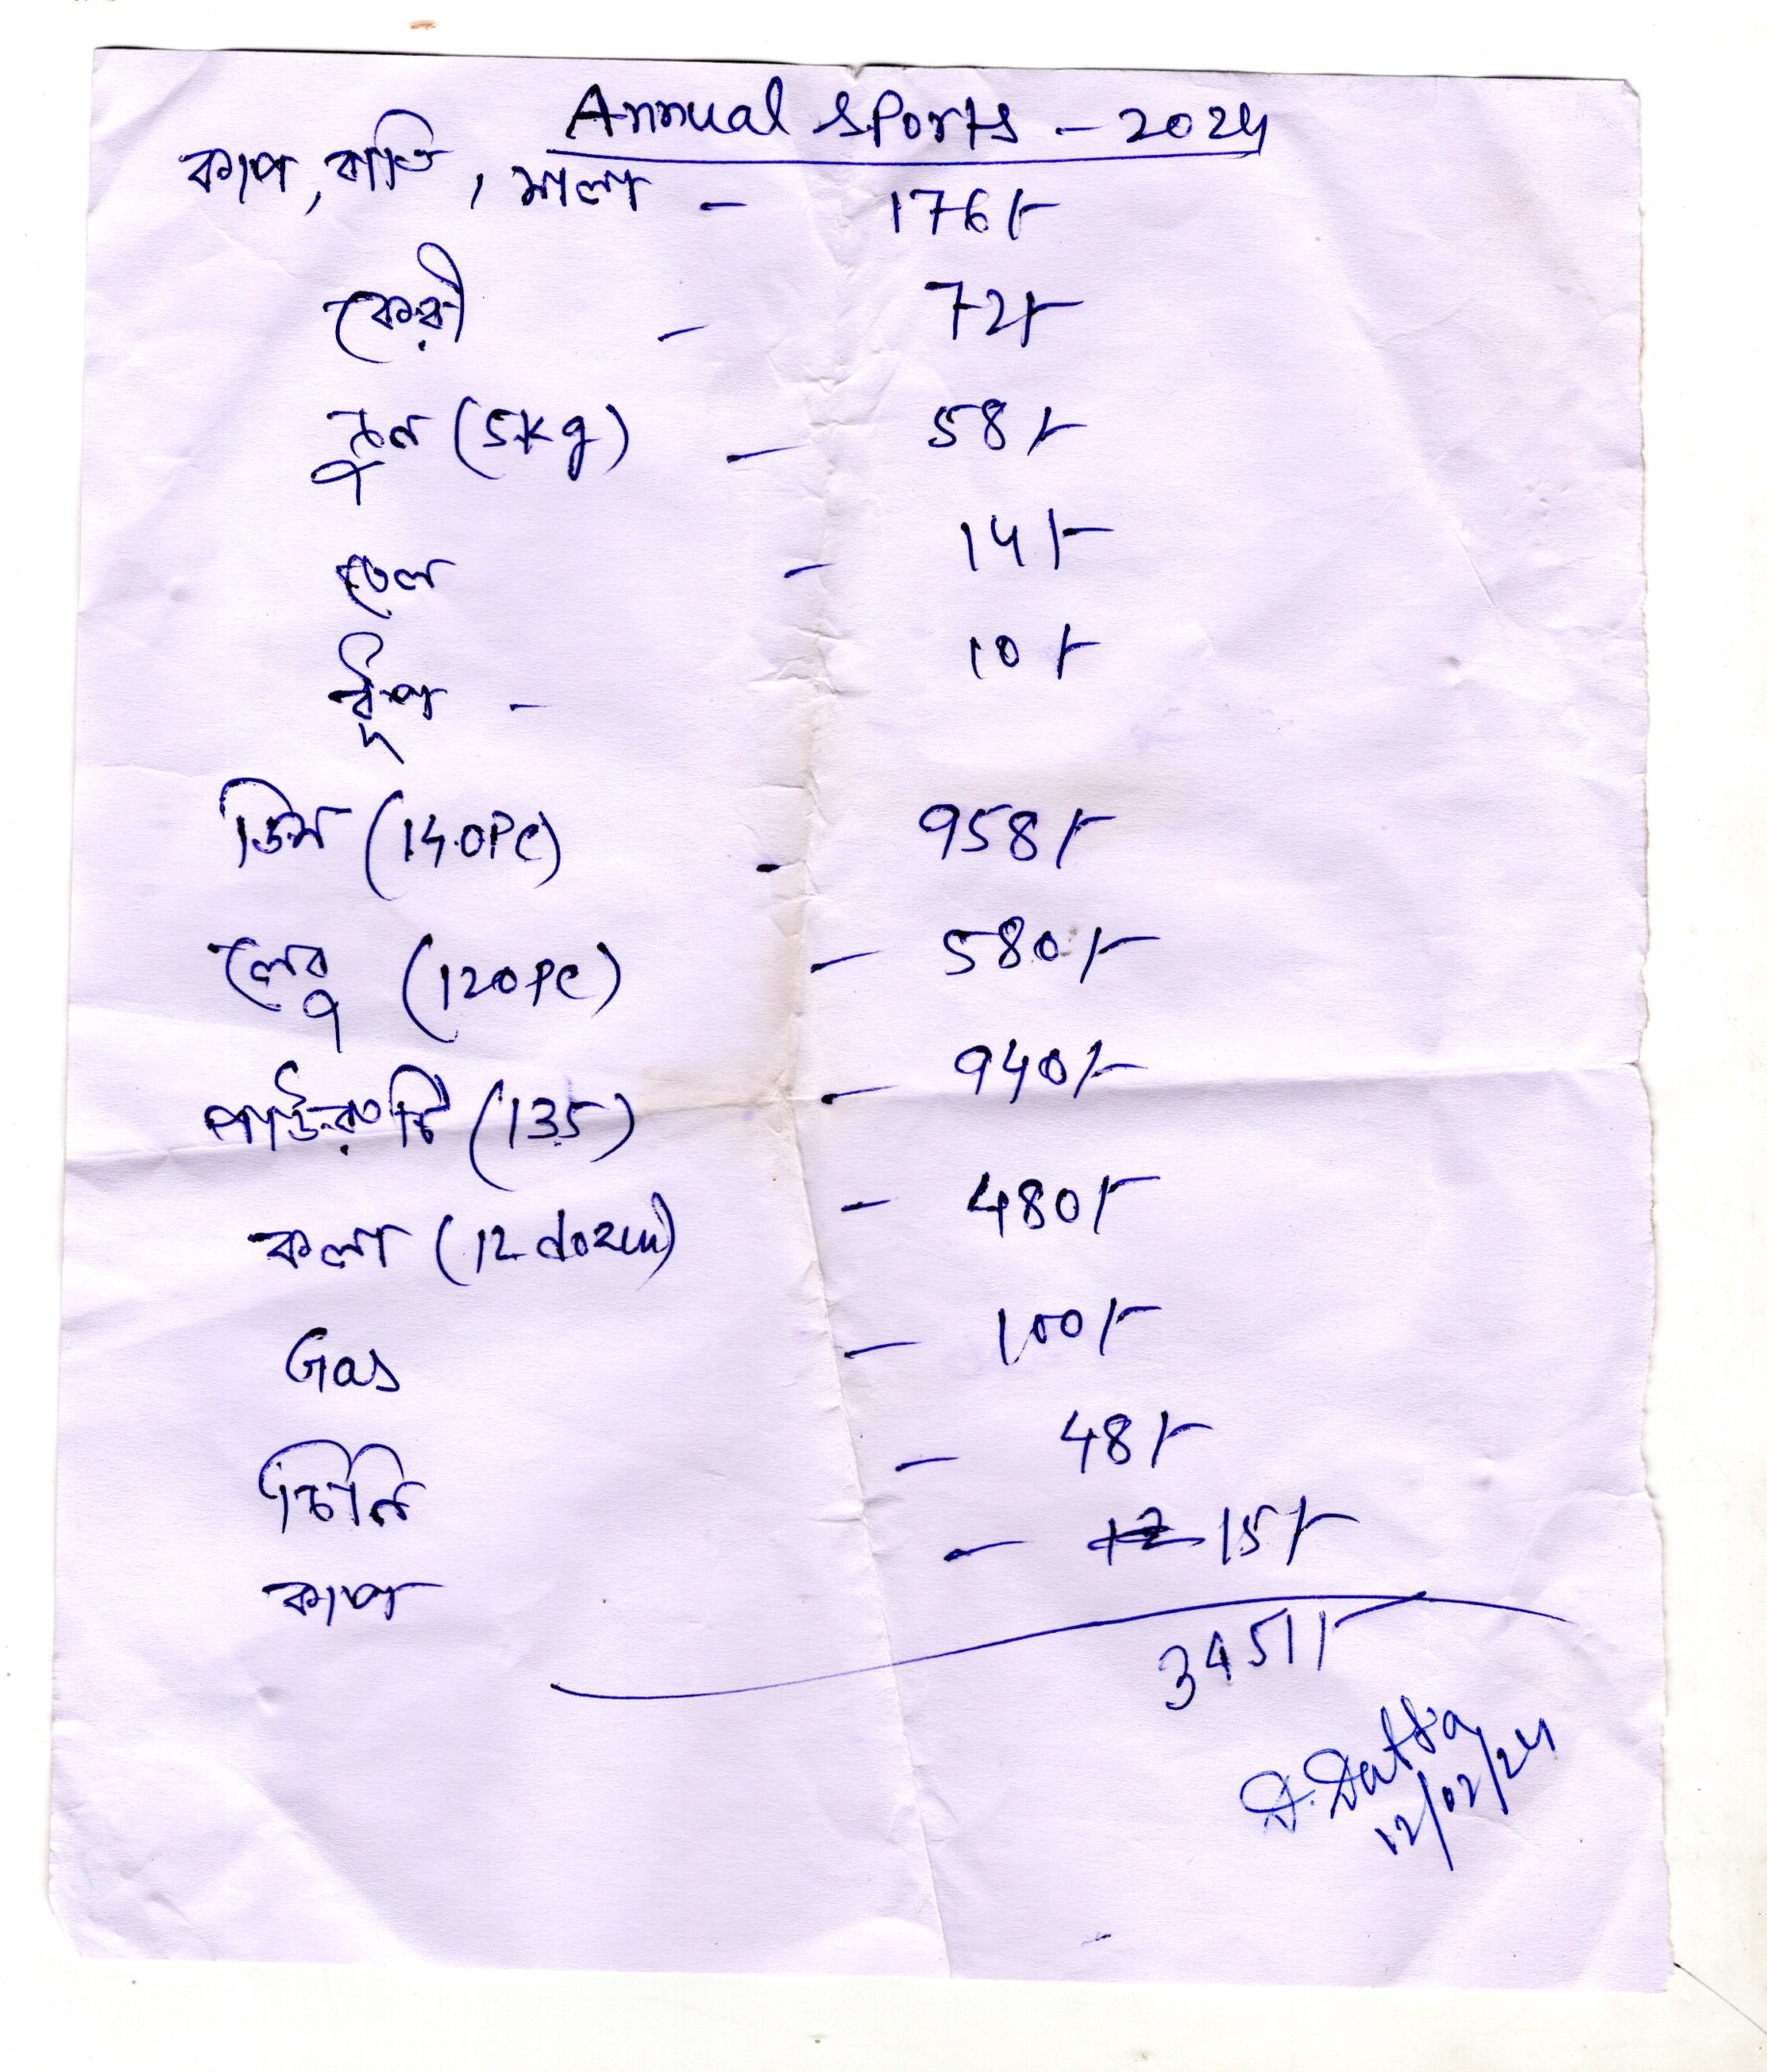 Annual Sports - 2024
কাপ, বাতি, মালা - 176/-
কেরী - 72/-
নুন (5kg) - 58/-
তেল - 14/-
ধূপ - 10/-
ডিম (140Pc) - 958/-
লেবু (120Pc) - 580/-
পাউরুটি (135) - 940/-
কলা (12 dozen) - 480/-
Gas - 100/-
চিনি - 48/-
কাপ - 12 15/-
3451/-
D. Datta
12/02/24